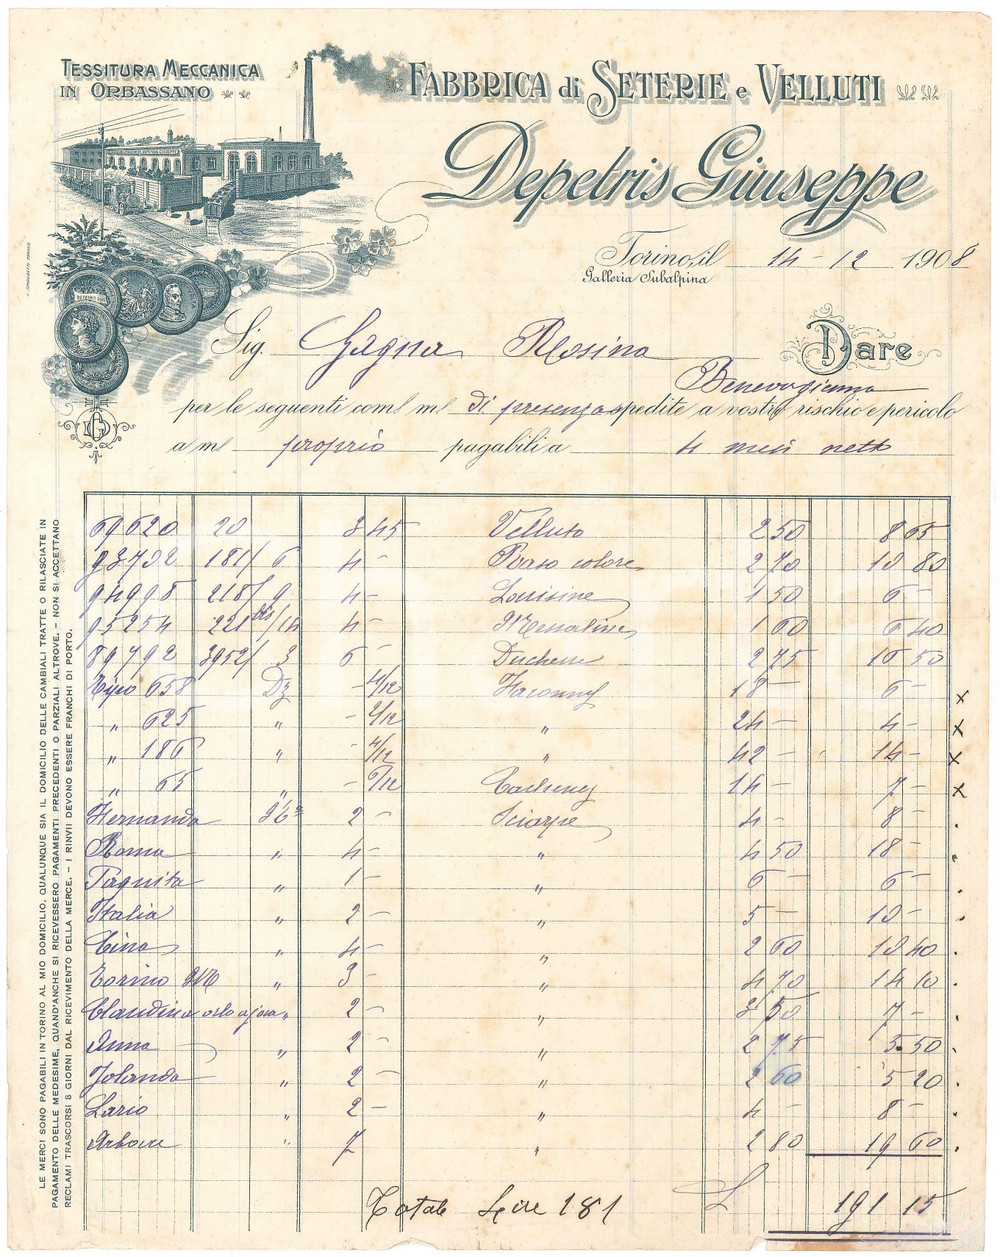 TESSITURA MECCANICA
IN ORBASSANO
FABBRICA di SETERIE e VELLUTI
Depetris Giuseppe
Torino, il 14-12 1908
Galleria Subalpina
Sig. Gagna Rosina
Dare
Benevagienna
per le seguenti com/ m/ di presenza spedite a vostro rischio e pericolo
a m/ proprio pagabili a 4 mesi netto
69620 20 3 45 Velluto 2 50 8 65
93732 181/6 4 — Raso colore 2 70 10 80
94998 218/9 4 — Louisine 1 50 6 —
95254 221 bis/14 4 — Messaline 1 60 6 40
89792 3952/3 6 — Duchesse 2 75 16 50
Tipo 658 Dz — 4/12 18 — 6 — x
„ 625 „ — 2/12 24 — 4 — x
„ 186 „ — 4/12 „ 42 — 14 — x
„ 65 „ — 6/12 Cachenez 14 — 7 — x
Fernanda 2 — Sciarpe 4 — 8 — .
Roma „ 4 — „ 4 50 18 — .
Paquita „ 1 — „ 6 — 6 — .
Italia „ 2 — „ 5 — 10 — .
Cina „ 4 — „ 2 60 10 40 .
Torino „ 3 — „ 4 70 14 10 .
Claudina „ 2 — „ 3 50 7 — .
Anna „ 2 — „ 2 75 5.50 .
Jolanda „ 2 — „ 2 60 5 20 .
Lario „ 2 — „ 4 — 8 — .
„ 7 „ 2 80 19 60 .
Totale Lire 181 L 191 15
LE MERCI SONO PAGABILI IN TORINO AL MIO DOMICILIO, QUALUNQUE SIA IL DOMICILIO DELLE CAMBIALI TRATTE O RILASCIATE IN
PAGAMENTO DELLE MEDESIME, QUAND'ANCHE SI RICEVESSERO PAGAMENTI PRECEDENTI O PARZIALI ALTROVE. - NON SI ACCETTANO
RECLAMI TRASCORSI 8 GIORNI DAL RICEVIMENTO DELLA MERCE. - I RINVII DEVONO ESSERE FRANCHI DI PORTO.